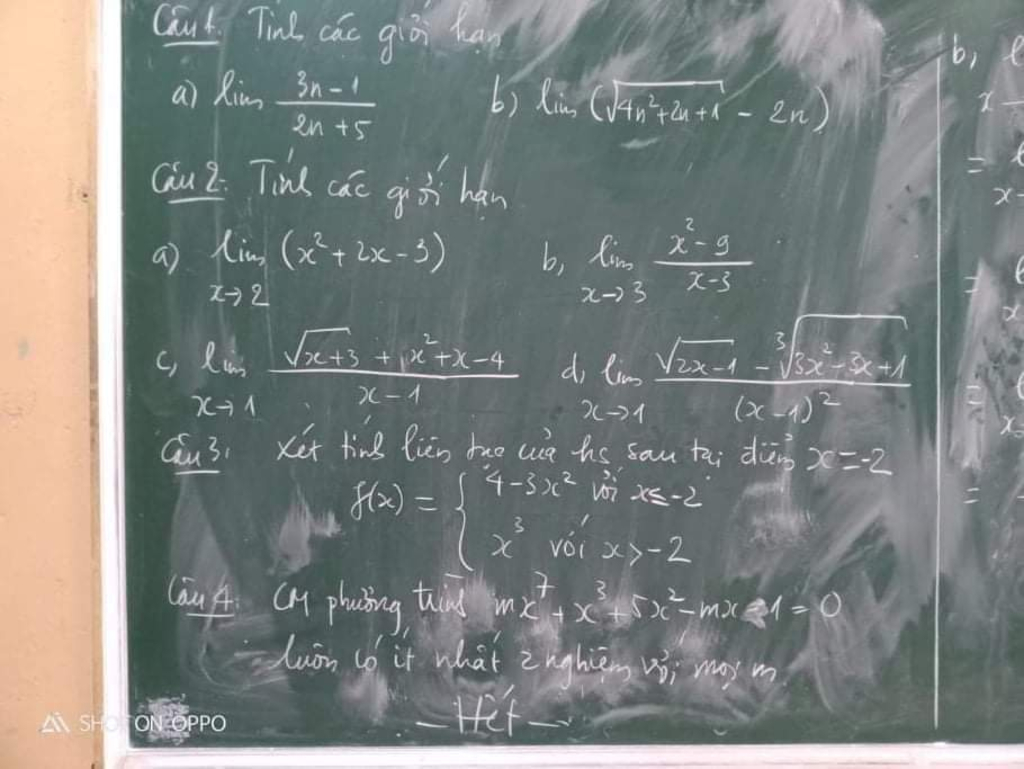 Câu 1. Tính các giới hạn
a) lim (3n-1)/(2n+5) b) lim (√(4n²+2n+1) - 2n)
Câu 2: Tính các giới hạn
a) lim x→2 (x²+2x-3) b, lim x→3 (x²-9)/(x-3)
c, lim x→1 (√(x+3) + x²+x-4)/(x-1) d, lim x→1 (√(2x-1) - ∛(3x²-3x+1))/(x-1)²
Câu 3: Xét tính liên tục của hs sau tại điểm x=-2
f(x) = { 4-3x² với x≤-2
x³ với x>-2
Câu 4: CM phương trình mx⁷+x³+5x²-mx-1=0
luôn có ít nhất 2 nghiệm với mọi m
- Hết -
b,
x
=
x
=
x
=
x
=
SHOT ON OPPO